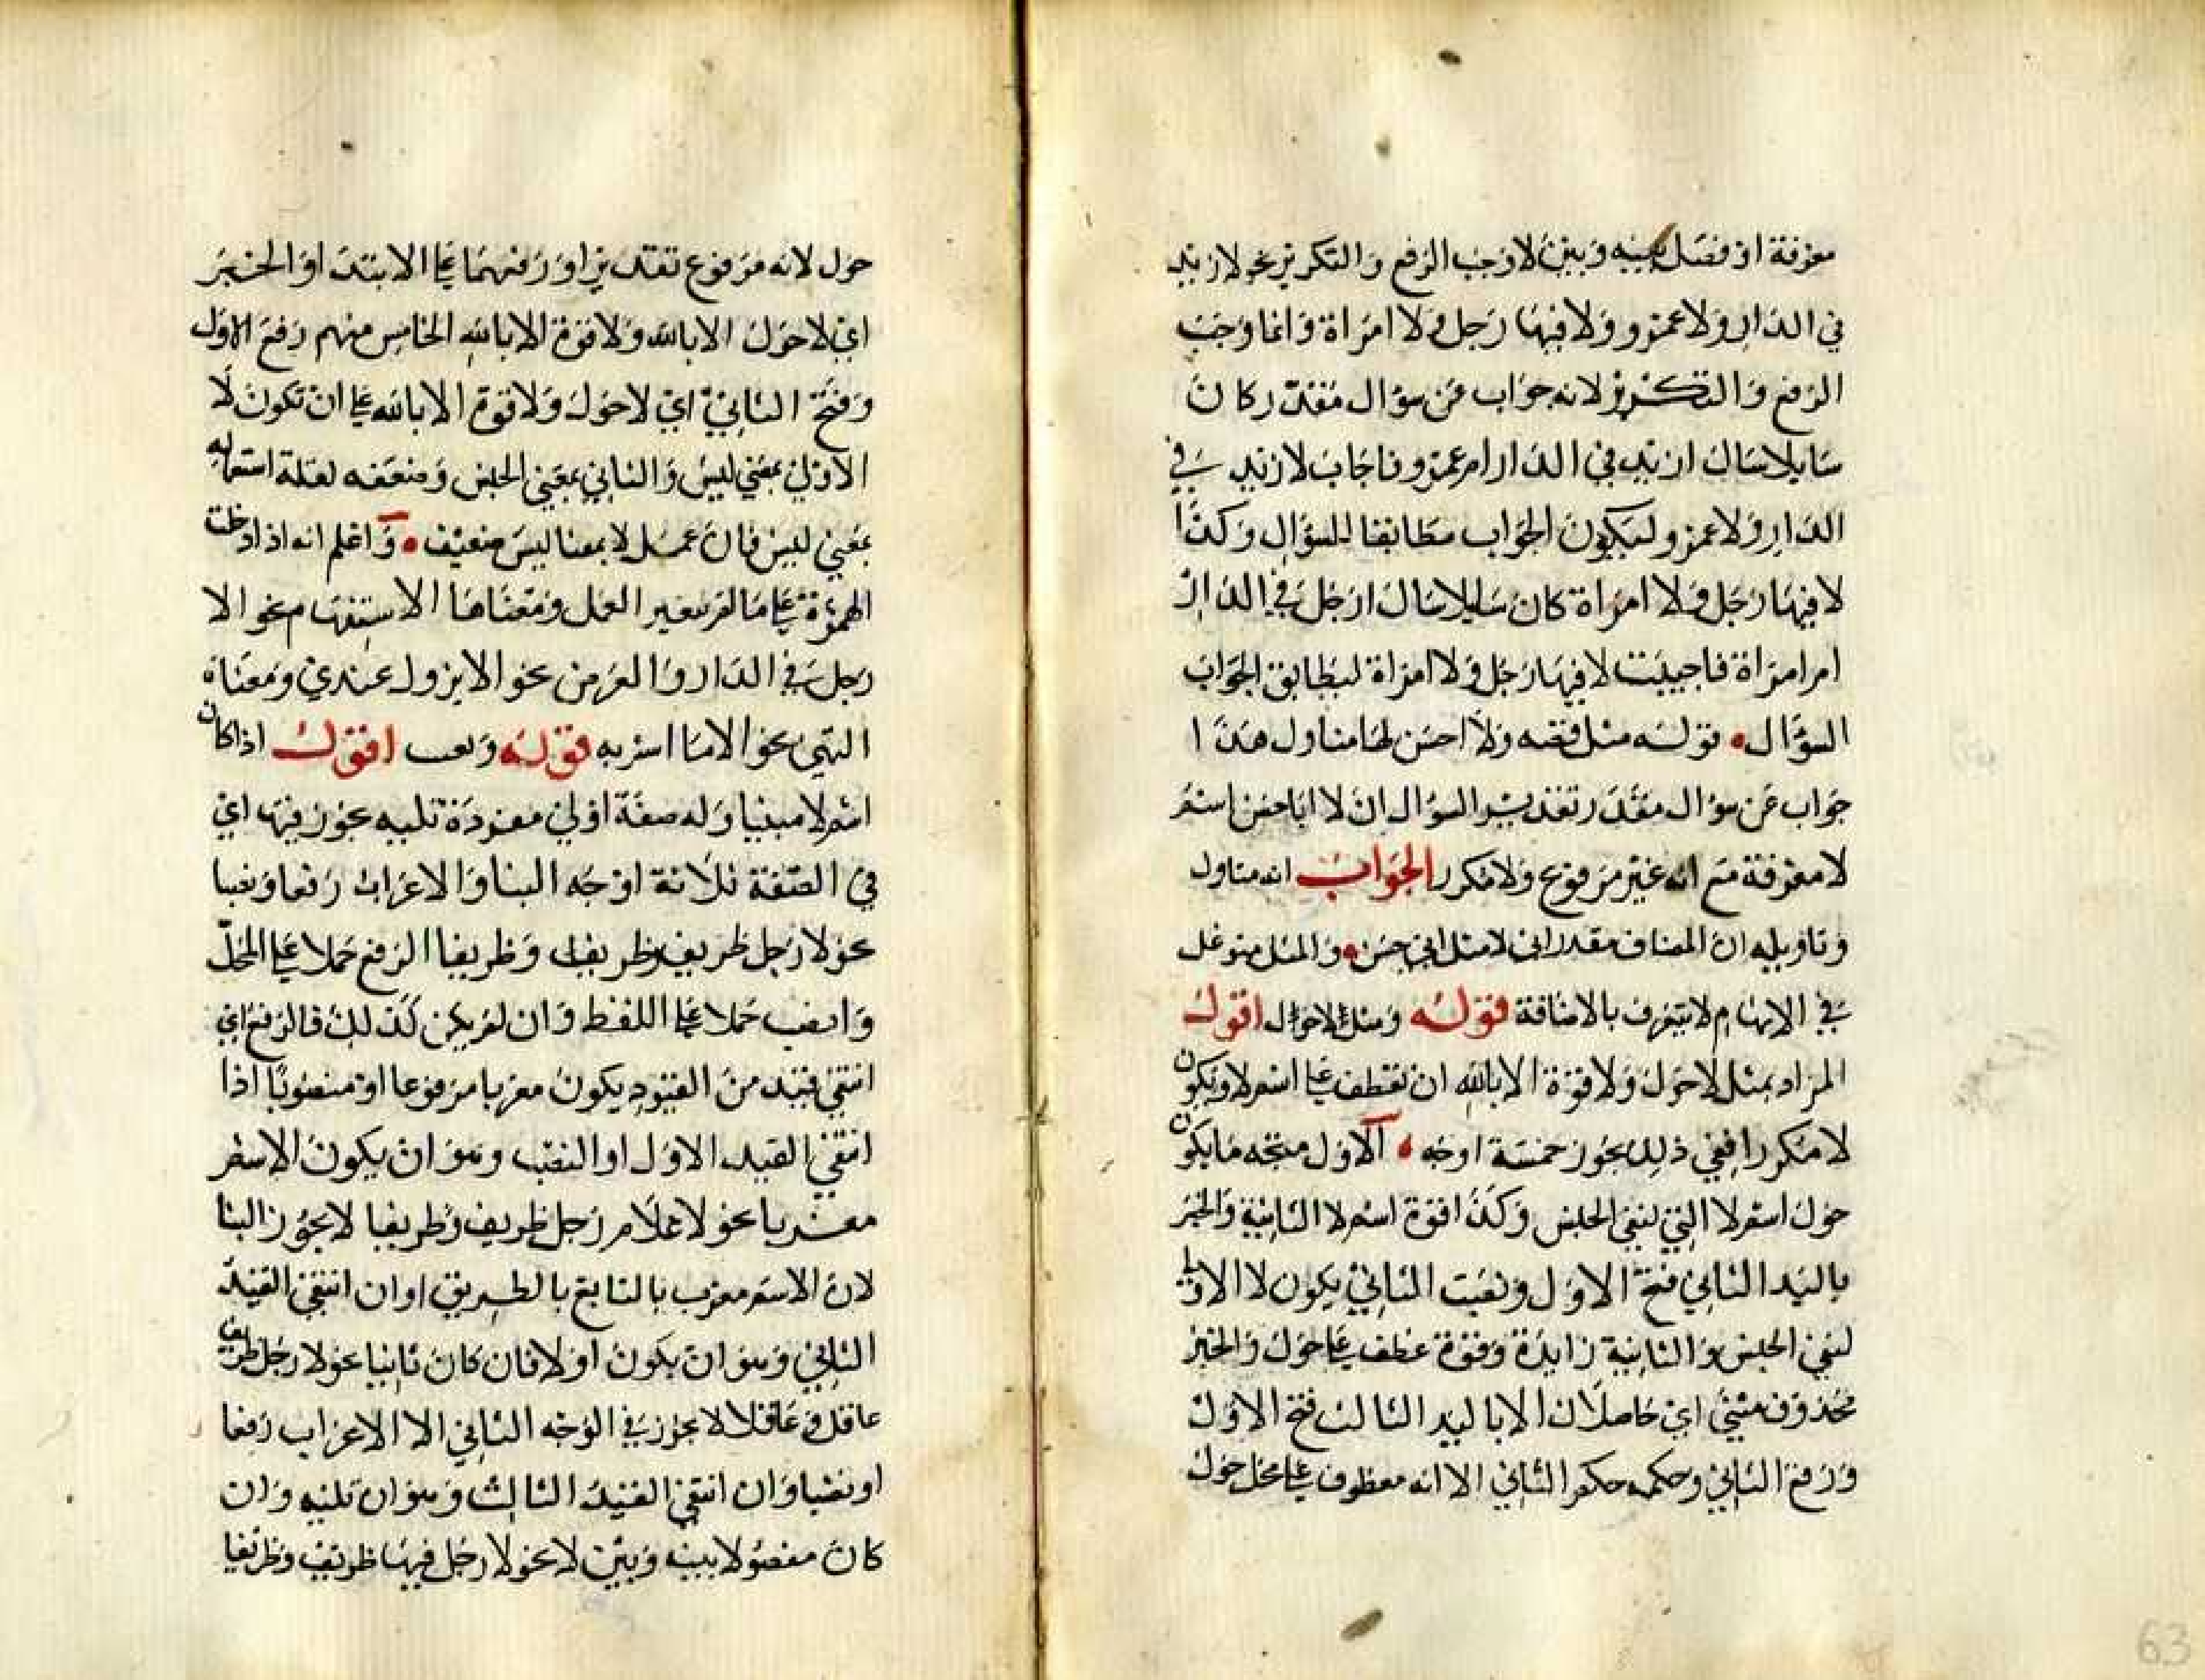 معرفة او فصل بينه وبين لا وجب الرفع والتكرير نحو لا زيد
في الدار ولا عمرو ولا فيها رجل ولا امراة وانما وجب
الرفع والتكرير لانه جواب عن سؤال مقدر كان
سايلا سال ازيد في الدار ام عمرو فاجاب لا زيد في
الدار ولا عمرو ليكون الجواب مطابقا للسؤال وكذا
لا فيها رجل ولا امراة كان سايلا سال ارجل في الدار
ام امراة فاجيبت لا فيها رجل ولا امراة ليطابق الجواب
السؤال قوله مثل قضه ولا احسن لها متاول هذا
جواب عن سؤال مقدر تقدير السؤال ان لا ابا حسن اسم
لا معرفة مع انه غير مرفوع ولا مكرر الجواب انه متاول
وتاويله ان المضاف مقدر اي لا مثل ابي حسن والمثل متوغل
في الابهام لا يتعرف بالاضافة قوله ومثل لا حول اقول
المراد بمثل لا حول ولا قوة الا بالله ان تعطف على اسم لا ويكون
لا مكررا ففي ذلك يجوز خمسة اوجه الاول فتحه ما يكون
حول اسم لا التي لنفي الجنس وكذا قوة اسم لا الثانية والخبر
باليد الثاني فتح الاول ونصب الثاني يكون لا الاولى
لنفي الجنس والثانية زايدة وقوة عطف على حول والخبر
محذوف مثنى اي حاصلان الا باليد الثالث فتح الاول
ورفع الثاني وحكمه حكم الثاني الا انه معطوف على محل حول
حول لانه مرفوع تقديرا ورفعهما على الابتدا والخبر
اي لا حول الا بالله ولا قوة الا بالله الخامس منهم رفع الاول
وفتح الثاني اي لا حول ولا قوة الا بالله على ان تكون لا
الاولى بمعني ليس والثاني بمعني الجنس وضعفه لقلة استعماله
بمعني ليس فان عمل لا بمعنا ليس ضعيف واعلم انه اذا دخلت
الهمزة على ما لم يتغير العمل ومعناها الاستفهام نحو الا
رجل في الدار والعرض نحو الا يزول عندي ومعناه
التمني نحو الا ما اشربه قوله ونعت اقول اذا كان
اسم لا مبنيا وله صفة اولي مفردة تليه يجوز فيها اي
في الصفة ثلاثة اوجه البنا والاعراب رفعا ونصبا
نحو لا رجل ظريف وظريف وظريفا الرفع حملا على المحل
والنصب حملا على اللفظ وان لم يكن كذلك فالرفع اي
انتفي قيد من القيود يكون معربا مرفوعا او منصوبا اذا
انتفي القيد الاول او النصب وهو ان يكون الاسم
معربا نحو لا غلام رجل ظريف وظريفا لا يجوز البنا
لان الاسم معرب بالتابع بالطريق او ان انتفي القيد
الثاني وهو ان يكون اولا فان كان ثانيا نحو لا رجل ظريف
عاقل وعاقلا لا يجوز في الوجه الثاني الا الاعراب رفعا
او نصبا وان انتفي القيد الثالث وهو ان تليه وان
كان مفصولا بينه وبين لا نحو لا رجل فيها ظريف وظريفا
63